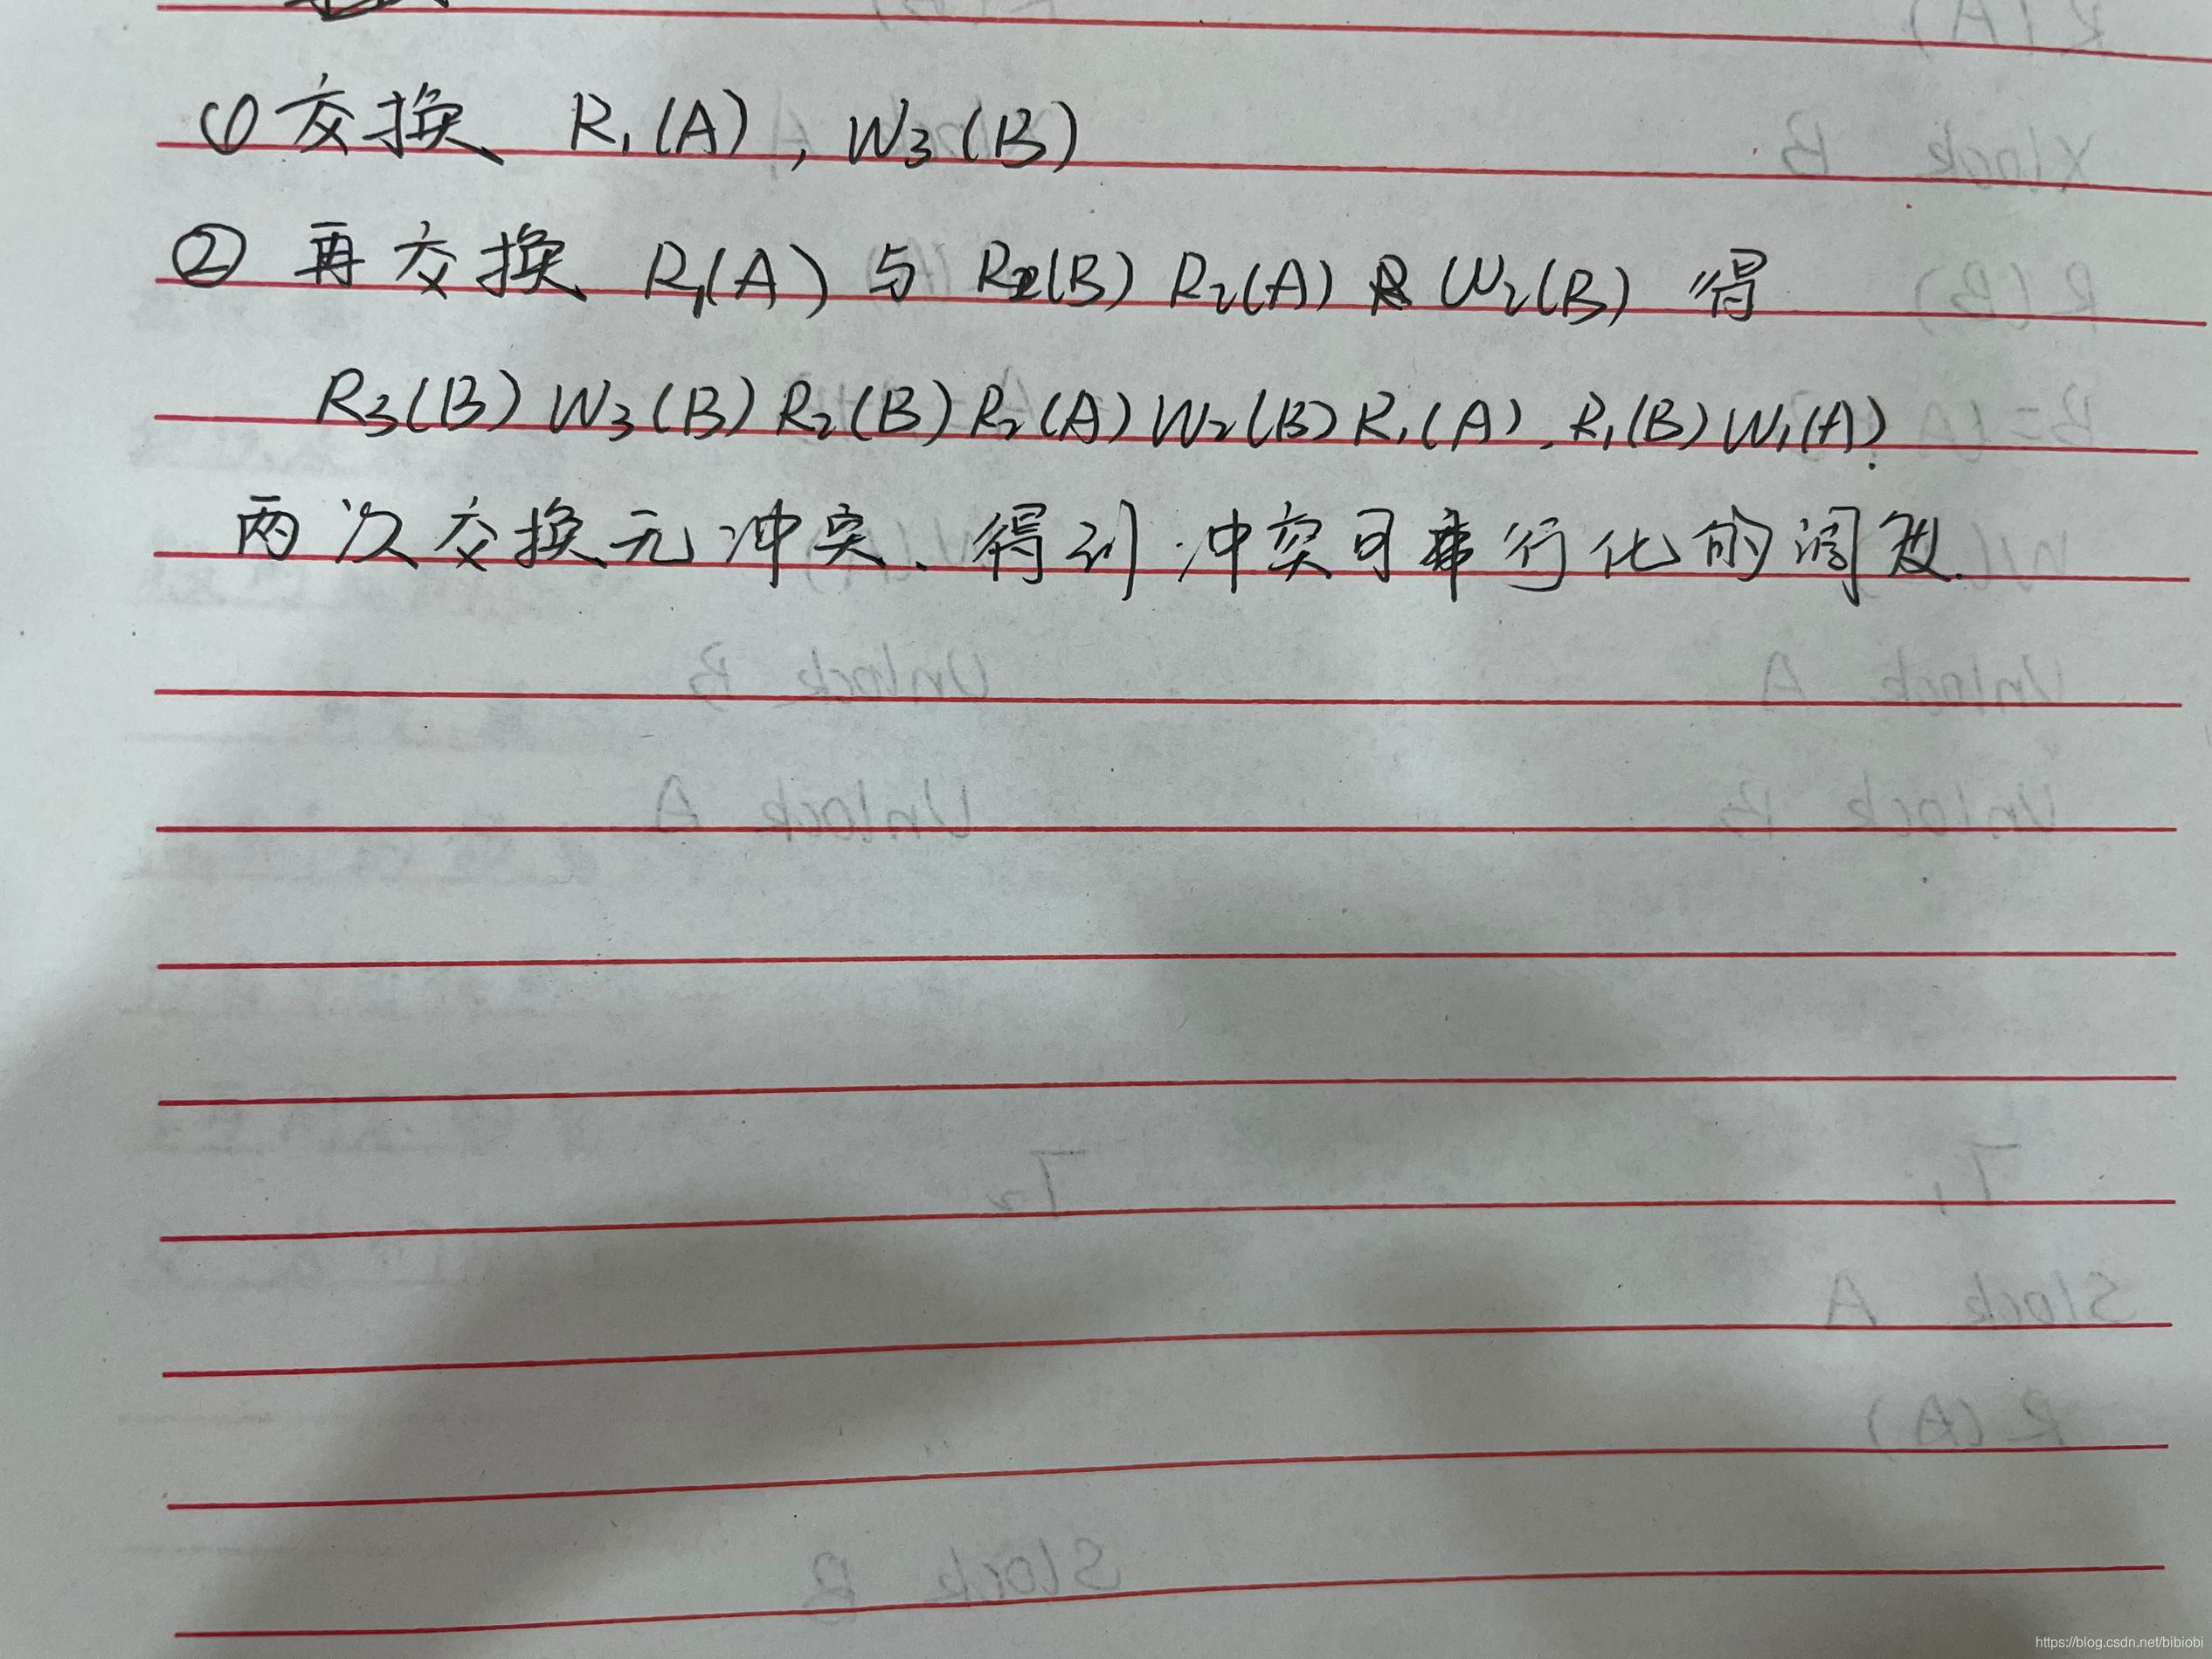 ① 交换 R₁(A), W₃(B)
② 再交换 R₁(A) 与 R₂(B) R₂(A) W₂(B) 得
R₃(B) W₃(B) R₂(B) R₂(A) W₂(B) R₁(A), R₁(B) W₁(A).
两次交换无冲突、得到冲突可串行化的调度.
https://blog.csdn.net/bibiobi